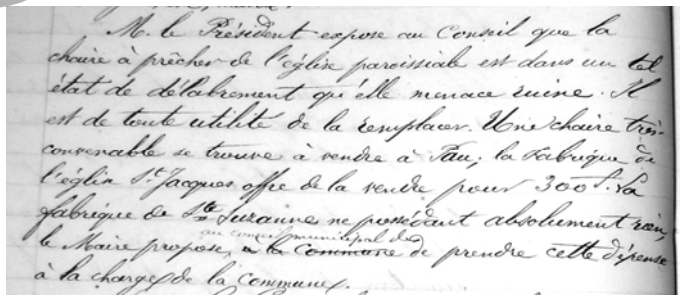 M. le Président expose au Conseil que la
chaire à prêcher de l'église paroissiale est dans un tel
état de délabrement qu'elle menace ruine. Il
est de toute utilité de la remplacer. Une chaire très-
convenable se trouve à vendre à Pau; la fabrique de
l'église St. Jacques offre de la vendre pour 300 f. La
fabrique de Ste Suzanne ne possédant absolument rien,
au conseil municipal de
le Maire propose, a la Commune de prendre cette dépense
à la charge de la commune.